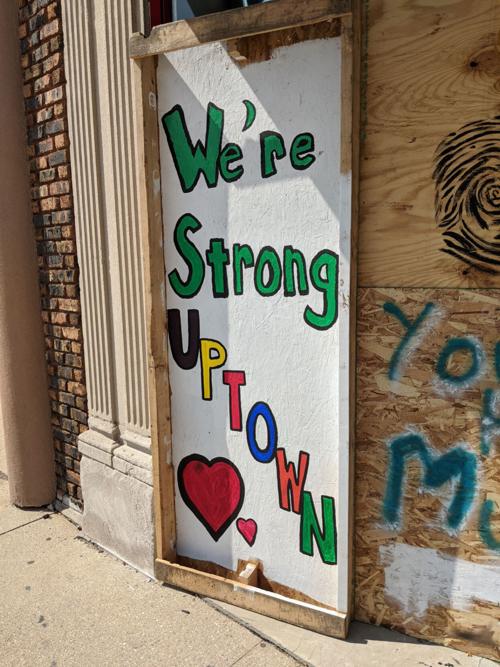 We're
Strong
UPTOWN